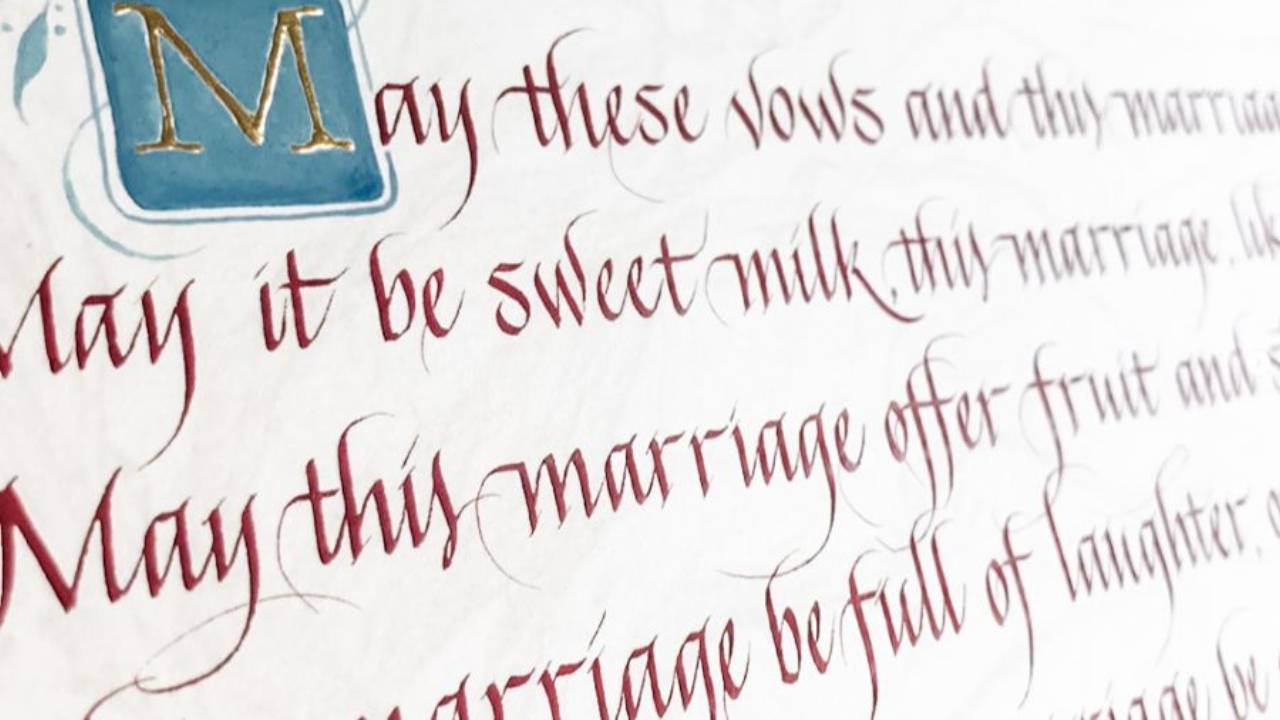 May these vows and this marriage
May it be sweet milk, this marriage, like
May this marriage offer fruit and
marriage be full of laughter,
marriage be